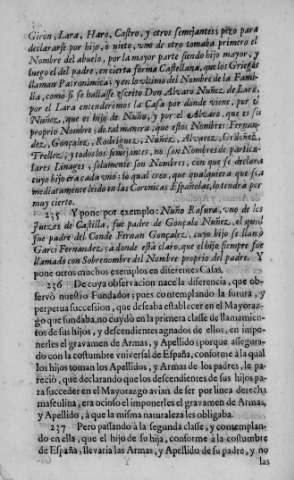 Giron, Lara, Haro, Castro, y otros semejantes; pero para
declararse por hijo, ò nieto, vno de otro tomaba primero el
Nombre del abuelo, por la mayor parte siendo hijo mayor, y
luego el del padre, en cierta forma Castellana, que los Griegos
llaman Patronimica: y en lo vltimo del Nombre de la Fami-
lia, como si se hallasse escrito Don Alvaro Nuñez de Lara,
por el Lara entenderèmos la Casa por donde viene, por el
Nuñez, que es hijo de Nuño, y por el Alvaro, que es su
proprio Nombre; de tal manera, que estos Nombres Fernan-
dez, Gonçalez, Rodriguez, Nuñez, Alvarez,
Tellez, y todos los semejantes, no son Nombres de particu-
lares Linages, solamente son Nombres, con que se declara
cuyo hijo era cada vno; lo qual creo, que qualquiera que sea
mediatamente leìdo en las Coronicas Españolas, lo tendrà por
muy cierto.
235 Y pone por exemplo: Nuño Rasura, vno de los
Juezes de Castilla, fue padre de Gonçalo Nuñez, el qual
fue padre del Conde Fernan Gonçalez, cuyo hijo se llamò
Garci Fernandez; à donde està claro, que el hijo siempre fue
llamado con Sobrenombre del Nombre proprio del padre. Y
pone otros muchos exemplos en diferentes Casas.
236 De cuya observacion nace la diferencia, que ob-
servò nuestro Fundador; pues contemplando la futura, y
perpetua succession, que deseaba establecer en el Mayoraz-
go que fundaba, no cuydò en la primera classe de llamamien-
tos de sus hijos, y descendientes agnados de ellos, en impo-
nerles el gravamen de Armas, y Apellido; porque assegura-
do con la costumbre vniversal de España, conforme à la qual
los hijos toman los Apellidos, y Armas de los padres, le pa-
reciò, que declarando que los descendientes de sus hijos pa-
ra succeder en el Mayorazgo avian de ser por linea derecha
masculina, era ocioso el imponerles el gravamen de Armas,
y Apellido, à que la misma naturaleza les obligaba.
237 Pero passando à la segunda classe, y contemplan-
do en ella, que el hijo de su hija, conforme à la costumbre
de España, llevaria las Armas, y Apellido de su padre, y no
las